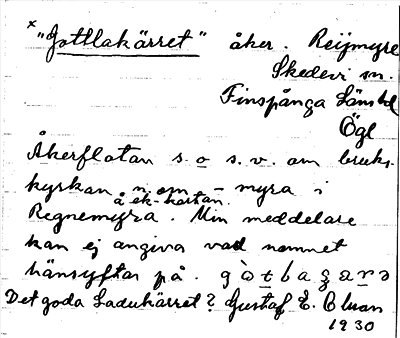 × "Gottlakärret" åker. Reijmyre
Skedevi sn.
Finspånga Länshd
Ögl
Åkerflatan s.o s.v. om bruks-
kyrkan n. om - myra i
å ek-kartan.
Regnemyra. Min meddelare
kan ej angiva vad namnet
hänsyftar på.
Det goda Laduhärret? Gustaf E. Bluan
1930